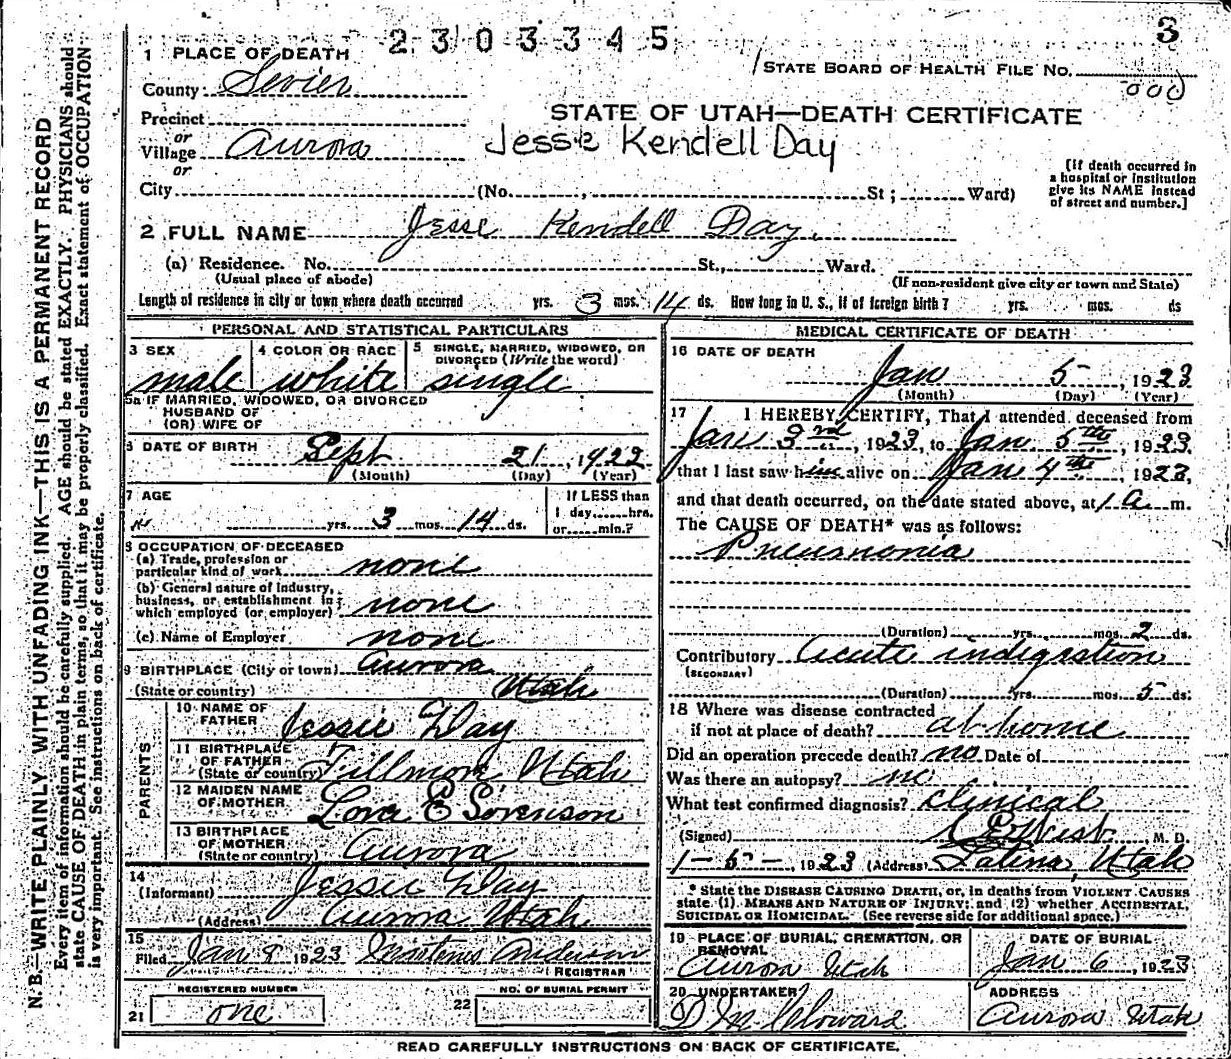 2303345
3
1 PLACE OF DEATH
STATE BOARD OF HEALTH FILE NO.
County Sevier
000
STATE OF UTAH—DEATH CERTIFICATE
Precinct
or
Village Aurora
Jesse Kendell Day
or
[If death occurred in
a hospital or institution
give its NAME instead
of street and number.]
City (No. , St ; Ward)
2 FULL NAME Jesse Kendell Day.
(a) Residence. No. St., Ward.
(Usual place of abode) (If non-resident give city or town and State)
Length of residence in city or town where death occurred yrs. 3 mos. 14 ds. How long in U. S., if of foreign birth? yrs. mos. ds
PERSONAL AND STATISTICAL PARTICULARS
3 SEX
male
4 COLOR OR RACE
white
5 SINGLE, MARRIED, WIDOWED, OR
DIVORCED (Write the word)
single
5a IF MARRIED, WIDOWED, OR DIVORCED
HUSBAND OF
(OR) WIFE OF
6 DATE OF BIRTH Sept 21, 1922
(Month) (Day) (Year)
7 AGE
yrs. 3 mos. 14 ds.
If LESS than
1 day, hrs.
or min.?
8 OCCUPATION OF DECEASED
(a) Trade, profession or
particular kind of work none
(b) General nature of industry,
business, or establishment in
which employed (or employer) none
(c) Name of Employer none
9 BIRTHPLACE (City or town) Aurora
(State or country) Utah
PARENTS
10 NAME OF
FATHER Jessie Day
11 BIRTHPLACE
OF FATHER
(State or country) Fillmore Utah
12 MAIDEN NAME
OF MOTHER Lora E Sorenson
13 BIRTHPLACE
OF MOTHER
(State or country) Aurora
14
(Informant) Jessie Day
(Address) Aurora Utah
15
Filed Jan 8 1923 Anderson
REGISTRAR
REGISTERED NUMBER
21 one
NO. OF BURIAL PERMIT
22
MEDICAL CERTIFICATE OF DEATH
16 DATE OF DEATH
Jan 5, 1923
(Month) (Day) (Year)
17 I HEREBY CERTIFY, That I attended deceased from
Jan 3rd, 1923, to Jan. 5th, 1923.
that I last saw him alive on Jan 4th, 1923,
and that death occurred, on the date stated above, at 1 a m.
The CAUSE OF DEATH* was as follows:
Pneumonia
(Duration) yrs. mos. 2 ds.
Contributory Acute indigestion
(SECONDARY)
(Duration) yrs. mos. 5 ds.
18 Where was disease contracted
if not at place of death? at home
Did an operation precede death? no Date of
Was there an autopsy? no
What test confirmed diagnosis? clinical
(Signed) M. D.
1-5-, 1923 (Address) Salina, Utah
* State the DISEASE CAUSING DEATH, or, in deaths from VIOLENT CAUSES
state (1) MEANS AND NATURE OF INJURY; and (2) whether ACCIDENTAL,
SUICIDAL OR HOMICIDAL. (See reverse side for additional space.)
19 PLACE OF BURIAL, CREMATION, OR
REMOVAL
Aurora Utah
DATE OF BURIAL
Jan 6, 1923
20 UNDERTAKER
ADDRESS
Aurora Utah
READ CAREFULLY INSTRUCTIONS ON BACK OF CERTIFICATE.
N. B.—WRITE PLAINLY WITH UNFADING INK—THIS IS A PERMANENT RECORD
Every item of information should be carefully supplied. AGE should be stated EXACTLY. PHYSICIANS should
state CAUSE OF DEATH in plain terms, so that it may be properly classified. Exact statement of OCCUPATION
is very important. See instructions on back of certificate.